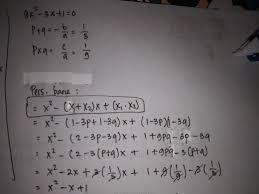 9x² - 3x + 1 = 0
p + q = -b/a = 1/3
p x q = c/a = 1/9
Pers. baru :
= x² - (x₁ + x₂)x + (x₁ . x₂)
= x² - (1 - 3p + 1 - 3q)x + (1 - 3p)(1 - 3q)
= x² - (2 - 3p - 3q)x + 1 + 9pq - 3p - 3q
= x² - (2 - 3(p+q)x + 1 + 9pq - 3(p+q)
= x² - 2x + 3(1/3)x + 1 + 9(1/9) - 3(1/3)
= x² - x + 1